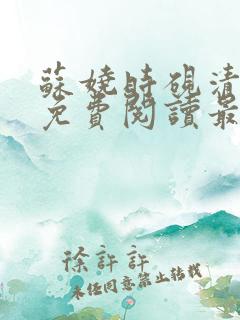 蘇嬈時硯清
免費閱讀最
徐許許
未經同意禁止轉載